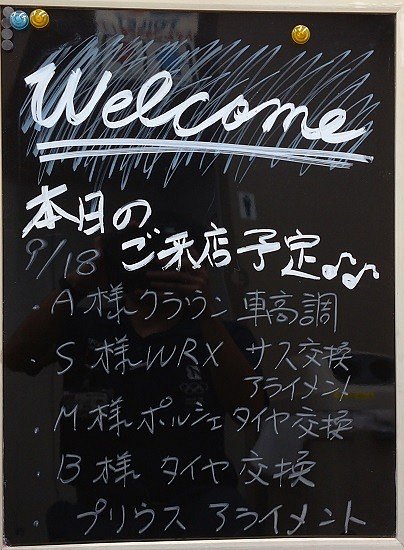 Welcome
本日の
9/18 ご来店予定♪♪
・A様クラウン 車高調
・S様WRX サス交換
アライメント
・M様ポルシェタイヤ交換
・B様 タイヤ交換
・プリウス アライメント